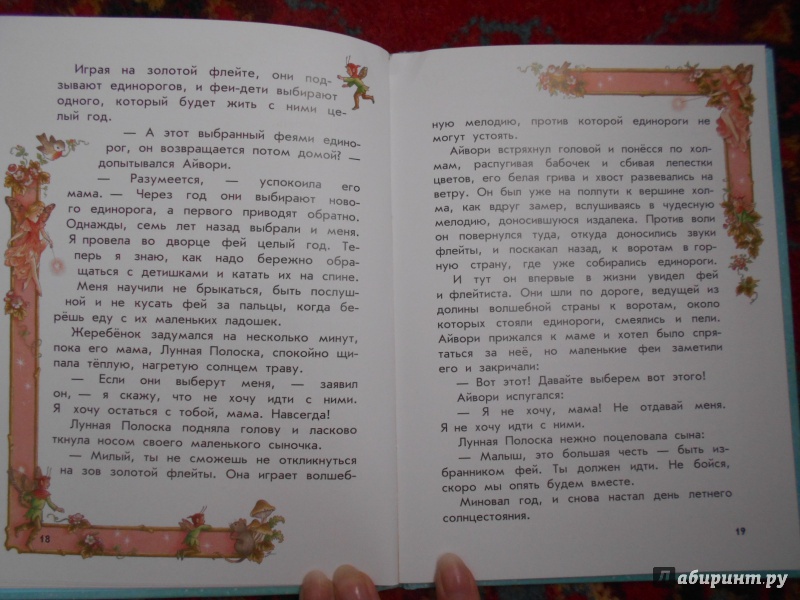 Играя на золотой флейте, они под-
зывают единорогов, и феи-дети выбирают
одного, который будет жить с ними це-
лый год.
— А этот выбранный феями едино-
рог, он возвращается потом домой? —
допытывался Айвори.
— Разумеется, — успокоила его
мама. — Через год они выбирают ново-
го единорога, а первого приводят обратно.
Однажды, семь лет назад выбрали и меня.
Я провела во дворце фей целый год. Те-
перь я знаю, как надо бережно обра-
щаться с детишками и катать их на спине.
Меня научили не брыкаться, быть послуш-
ной и не кусать фей за пальцы, когда бе-
рёшь еду с их маленьких ладошек.
Жеребёнок задумался на несколько минут,
пока его мама, Лунная Полоска, спокойно щи-
пала тёплую, нагретую солнцем траву.
— Если они выберут меня, — заявил
он, — я скажу, что не хочу идти с ними.
Я хочу остаться с тобой, мама. Навсегда!
Лунная Полоска подняла голову и ласково
ткнула носом своего маленького сыночка.
— Милый, ты не сможешь не откликнуться
на зов золотой флейты. Она играет волшеб-
18
ную мелодию, против которой единороги не
могут устоять.
Айвори встряхнул головой и понёсся по хол-
мам, распугивая бабочек и сбивая лепестки
цветов, его белая грива и хвост развевались на
ветру. Он был уже на полпути к вершине хол-
ма, как вдруг замер, вслушиваясь в чудесную
мелодию, доносившуюся издалека. Против воли
он повернулся туда, откуда доносились звуки
флейты, и поскакал назад, к воротам в гор-
ную страну, где уже собирались единороги.
И тут он впервые в жизни увидел фей
и флейтиста. Они шли по дороге, ведущей из
долины волшебной страны к воротам, около
которых стояли единороги, смеялись и пели.
Айвори прижался к маме и хотел было спря-
таться за неё, но маленькие феи заметили
его и закричали:
— Вот этот! Давайте выберем вот этого!
Айвори испугался:
— Я не хочу, мама! Не отдавай меня.
Я не хочу идти с ними.
Лунная Полоска нежно поцеловала сына:
— Малыш, это большая честь — быть из-
бранником фей. Ты должен идти. Не бойся,
скоро мы опять будем вместе.
Миновал год, и снова настал день летнего
солнцестояния.
19
лабиринт.ру